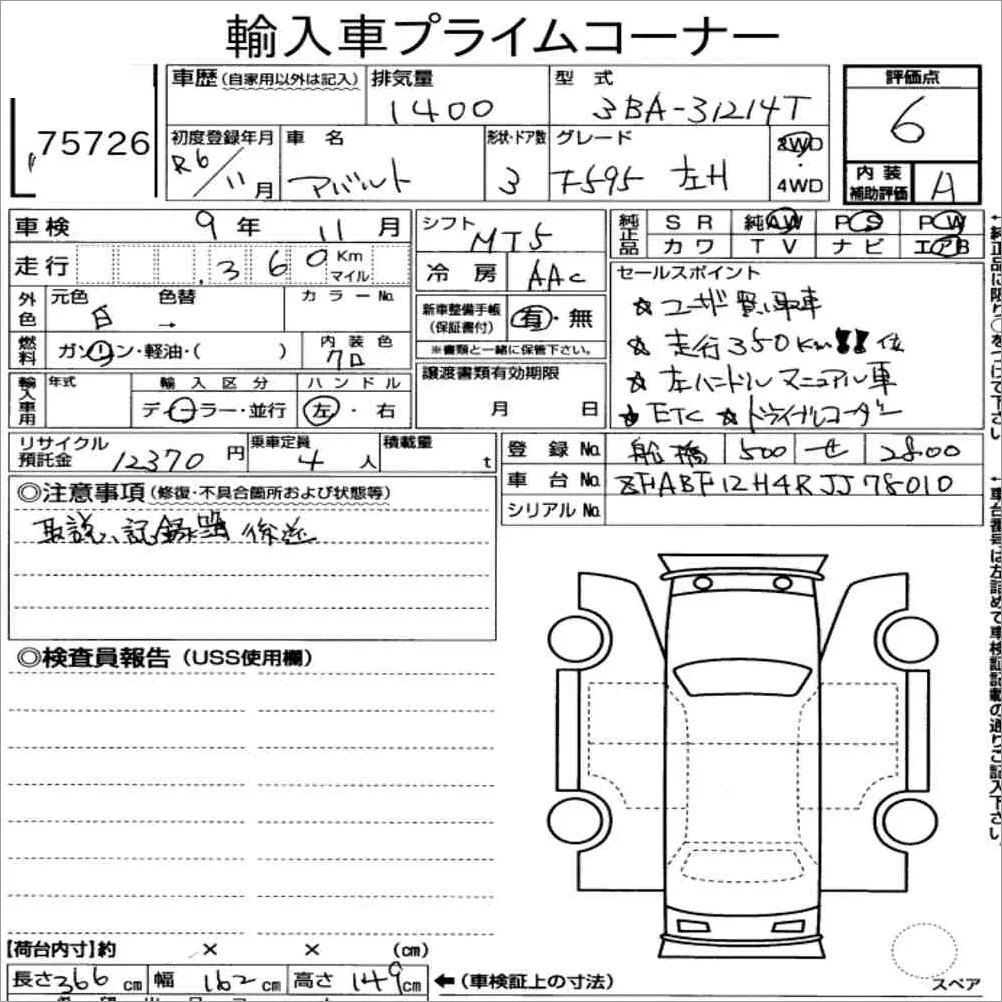 輸入車プライムコーナー
75726
車歴(自家用以外は記入) 排気量 1400 型式 3BA-31214T
評価点 6
初度登録年月 R6/11月 車名 アバルト 形状・ドア数 3 グレード F595 左H 2WD・4WD
内装補助評価 A
車検 9年 11月
シフト MT5
純正品 SR 純AW PS PW
カワ TV ナビ エアB
走行 360 Km マイル
冷房 AAC
外色 元色 白 色替 → カラーNo.
新車整備手帳(保証書付) 有・無
※書類と一緒に保管下さい。
燃料 ガソリン・軽油・( ) 内装色 クロ
セールスポイント
☆ユーザー買い取車
☆走行350Km!!位
☆左ハンドル マニュアル車
☆ETC ☆ドライブレコーダー
輸入車用 年式 輸入区分 ディーラー・並行 ハンドル 左・右
譲渡書類有効期限 月 日
リサイクル預託金 12370円 乗車定員 4人 積載量 t
登録No. 船橋 500 せ 2800
車台No. ZFABF12H4RJJ78010
シリアルNo.
◎注意事項(修復・不具合箇所および状態等)
取説、記録簿 後送
◎検査員報告(USS使用欄)
【荷台内寸】約 × × (cm)
長さ366cm 幅 162cm 高さ 149cm ←(車検証上の寸法)
スペア